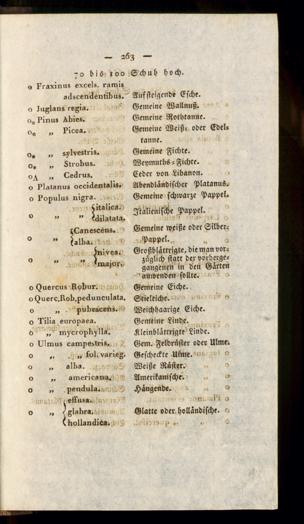 — 263 —
70 bis 100 Schuh hoch.
o Fraxinus excels. ramis
adscendentibus. Aufsteigende Esche.
o Juglans regia. Gemeine Wallnuß.
o* Pinus Abies. Gemeine Rothtanne.
o* „ Picea. Gemeine Weiß- oder Edel-
tanne.
o* „ sylvestris. Gemeine Fichte.
o* „ Strobus. Weymuths-Fichte.
o∆ „ Cedrus. Ceder von Libanon.
o Platanus occidentalis. Abendländischer Platanus.
o Populus nigra. Gemeine schwarze Pappel.
o „ „ {italica. dilatata. Italienische Pappel.
o „ {Canescens. alba. Gemeine weiße oder Silber-
Pappel.
o „ „ {nivea. major. Großblättrigte, die man vor-
züglich statt der vorherge-
gangenen in den Gärten
anwenden sollte.
o Quercus Robur. Gemeine Eiche.
o Querc. Rob. pedunculata. Stieleiche.
o „ pubescens. Weichhaarige Eiche.
o Tilia europaea. Gemeine Linde.
o „ mycrophylla. Kleinblättrigte Linde.
o Ulmus campestris. Gem. Feldrüster oder Ulme.
o „ „ fol. varieg. Gescheckte Ulme.
o „ alba. Weiße Rüster.
o „ americana. Amerikanische.
o „ pendula. Hängende.
o „ {effusa.
glabra. Glatte oder holländische.
hollandica.